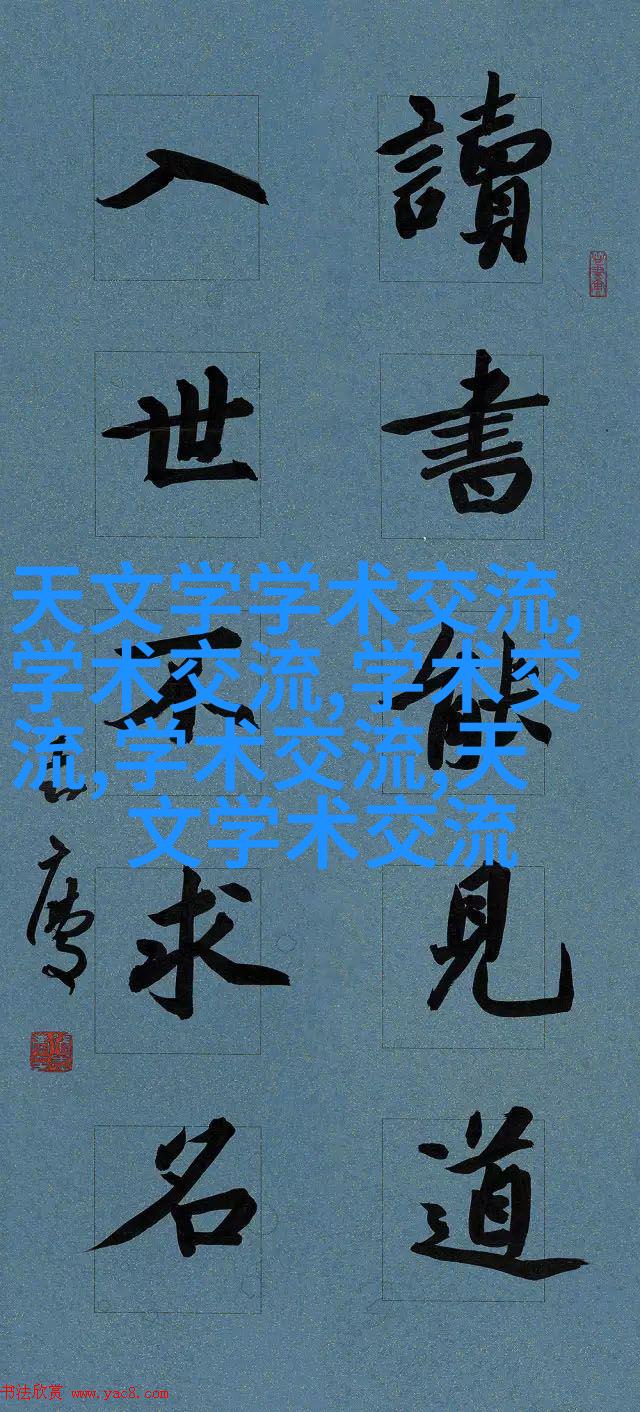 讀書能見道
入世不求名
天文学学术交流,
学术交流,学术交
流,学术交流,天
文学术交流
书法欣赏 www.yac8.com